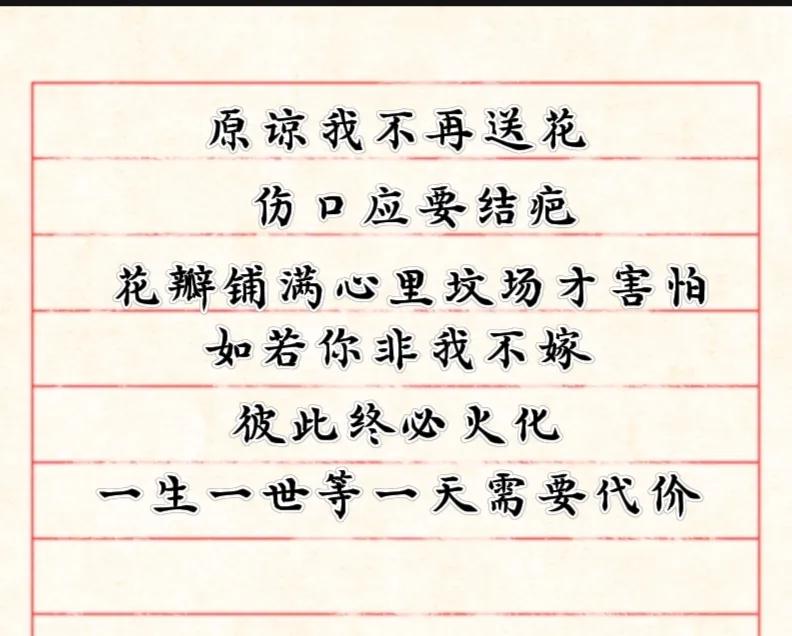 原谅我不再送花
伤口应要结疤
花瓣铺满心里坟场才害怕
如若你非我不嫁
彼此终必火化
一生一世等一天需要代价